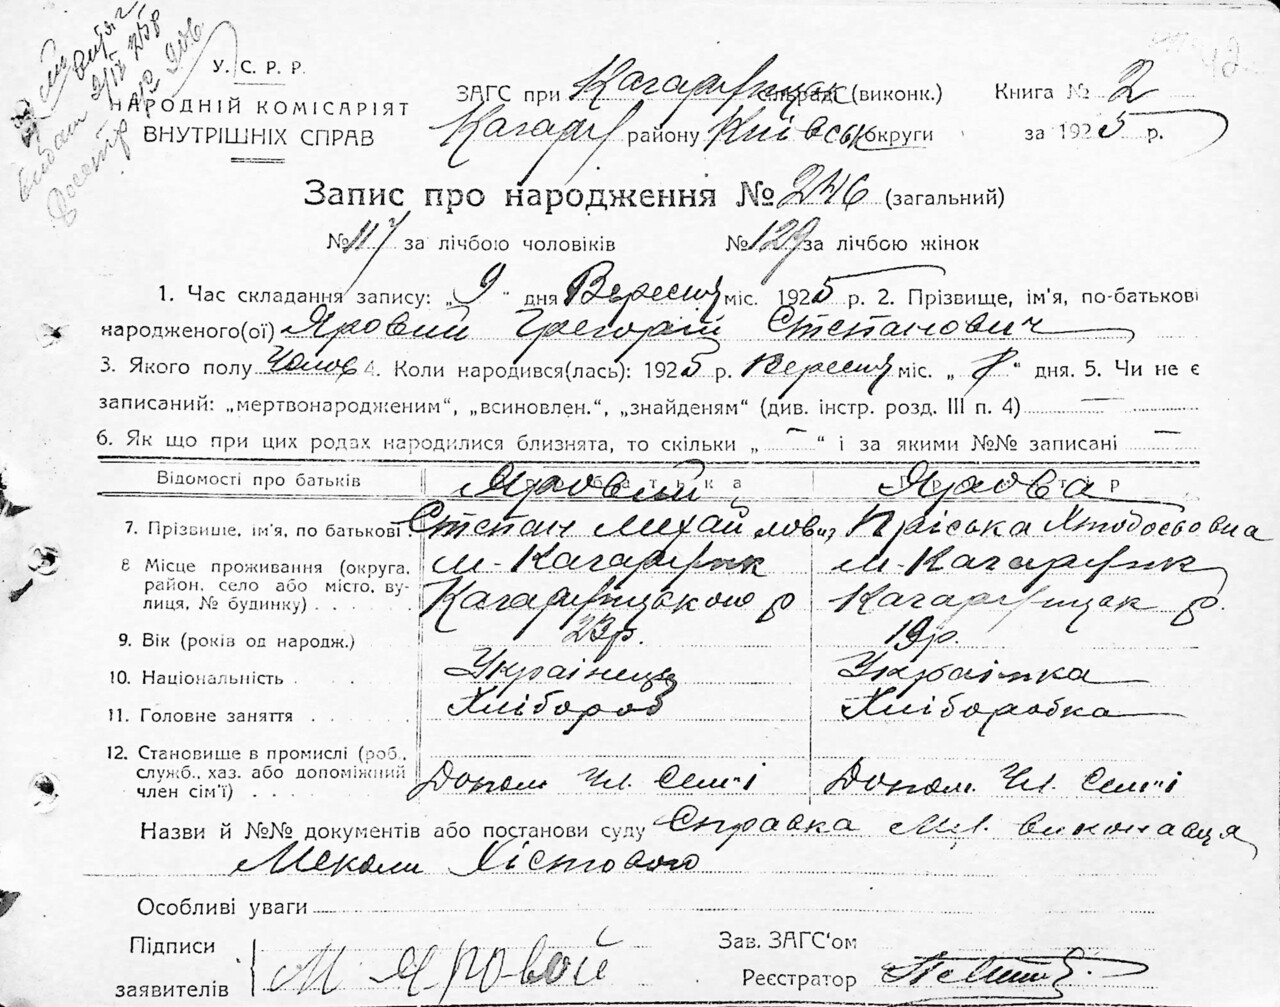 У.С.Р.Р.
НАРОДНІЙ КОМІСАРІЯТ
ВНУТРІШНІХ СПРАВ
ЗАГС при Кагарлицьк сільраді (виконк.)
Кагарл району Київськ округи
Книга № 2
за 1925 р.
Запис про народження № 246 (загальний)
№ 117 за лічбою чоловіків № 129 за лічбою жінок
1. Час складання запису: „9" дня Вересня міс. 1925 р. 2. Прізвище, ім'я, по-батькові
народженого(ої) Яровий Григорій Степанович
3. Якого полу Чолов 4. Коли народився(лась): 1925 р. Вересня міс. „8" дня. 5. Чи не є
записаний: „мертвонародженим", „всиновлен.", „знайденям" (див. інстр. розд. III п. 4) —
6. Як що при цих родах народилися близнята, то скільки „—" і за якими №№ записані —
Відомості про батьків Яровий Ярова
7. Прізвище, ім'я, по батькові Степан Михайлович Пріська Хтодосьовна
8 Місце проживання (округа, м. Кагарлик м. Кагарлик
район, село або місто, ву-
лиця, № будинку) Кагарлицького р Кагарлицьк р.
9. Вік (років од народж.) 23 р. 19 р.
10. Національність Українець Українка
11. Головне заняття Хлібороб Хліборобка
12. Становище в промислі (роб.,
служб., хаз. або допоміжний Допом. Чл. Сем'ї Допом. Чл. Сем'ї
член сім'ї)
Назви й №№ документів або постанови суду Справка Мл. виконавця
Миколи Хістового
Особливі уваги
Підписи
заявителів
М Яровой
Зав. ЗАГС'ом
Реєстратор